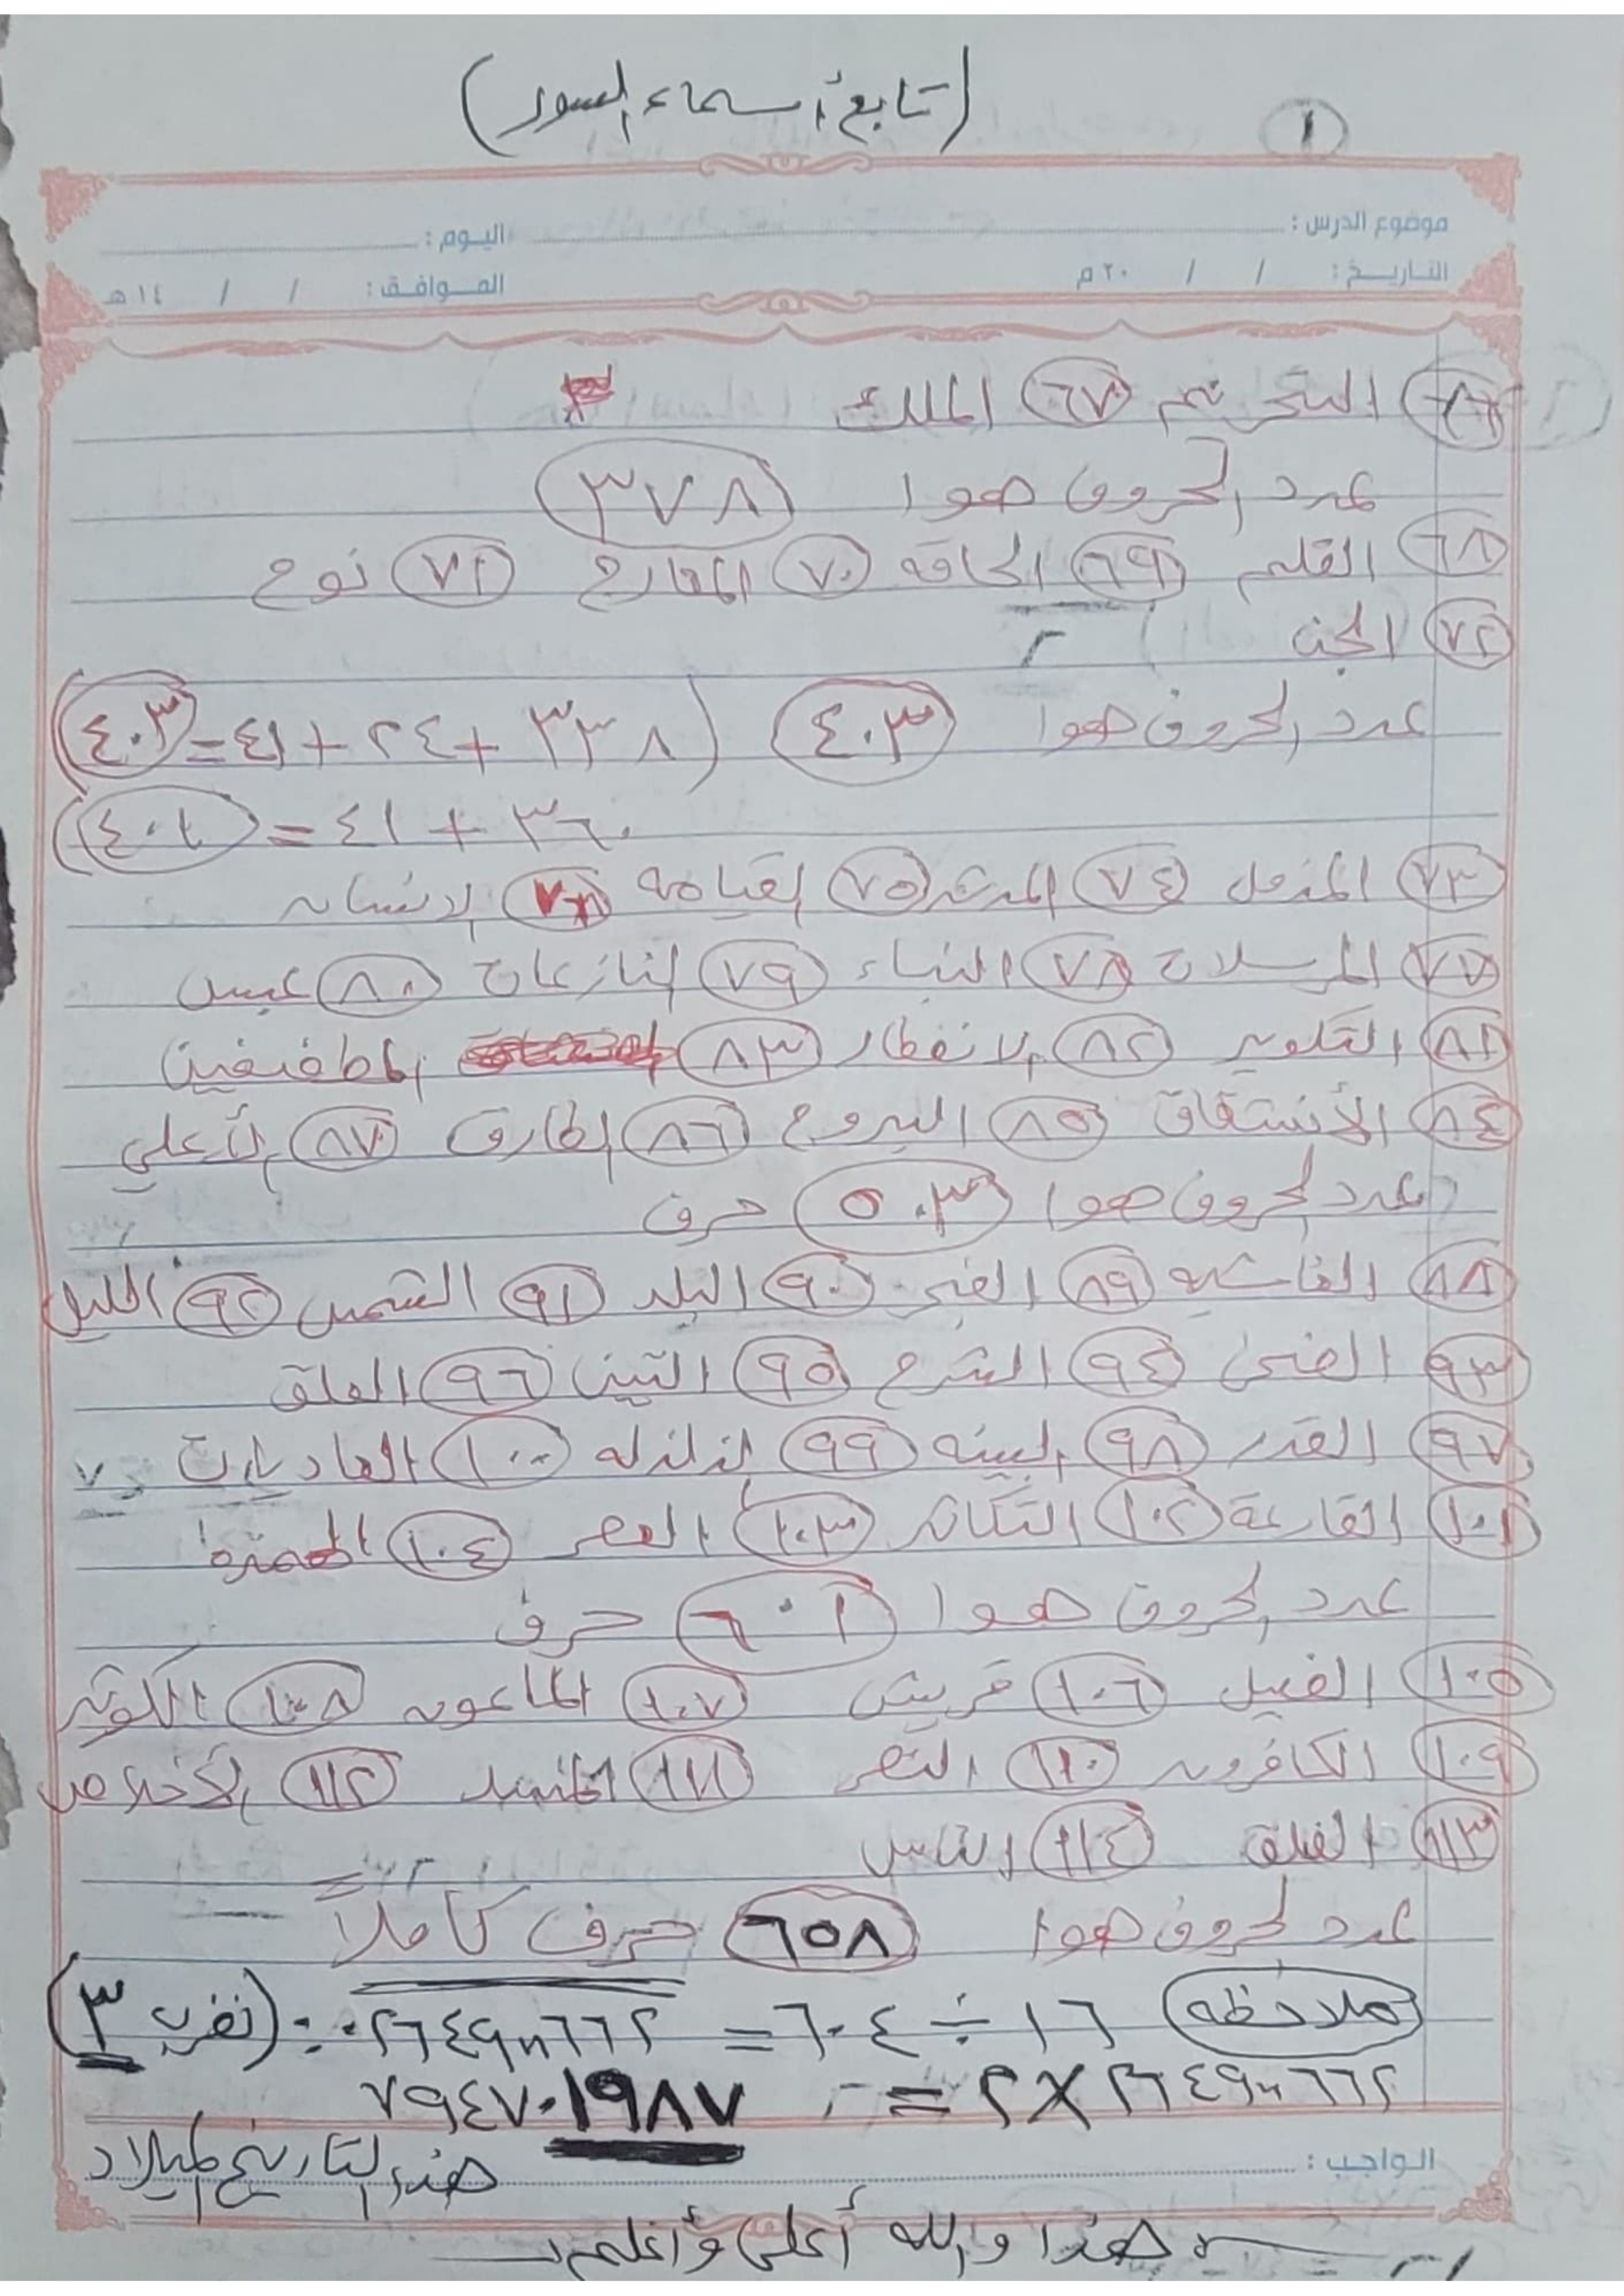 (تابع أسماء السور) ١
موضوع الدرس : اليوم :
التاريخ : / / ٢٠ م الموافق : / / ١٤ هـ
٦٦ التحريم ٦٧ الملك
عدد الحروف هوا ٣٧٨
٦٨ القلم ٦٩ الحاقه ٧٠ المعارج ٧١ نوح
٧٢ الجن
عدد الحروف هوا ٤٠٣ (٣٣٨ + ٢٤ + ٤١ = ٤٠٣)
٣٦٠ + ٤١ = ٤٠١)
٧٣ المزمل ٧٤ المدثر ٧٥ القيامه ٧٦ الانسان
٧٧ المرسلات ٧٨ النباء ٧٩ النازعات ٨٠ عبس
٨١ التكوير ٨٢ الانفطار ٨٣ المطففين
٨٤ الأنشقاق ٨٥ البروج ٨٦ الطارق ٨٧ الأعلي
عدد الحروف هوا ٥٠٣ حرف
٨٨ الغاشيه ٨٩ الفجر ٩٠ البلد ٩١ الشمس ٩٢ الليل
٩٣ الضحى ٩٤ الشرح ٩٥ التين ٩٦ العلق
٩٧ القدر ٩٨ البينه ٩٩ الزلزله ١٠٠ العاديات
١٠١ القارعة ١٠٢ التكاثر ١٠٣ العصر ١٠٤ الهمزه
عدد الحروف هوا ٦٠١ حرف
١٠٥ الفيل ١٠٦ قريش ١٠٧ الماعون ١٠٨ الكوثر
١٠٩ الكافرون ١١٠ النصر ١١١ المسد ١١٢ الأخلاص
١١٣ الفلق ١١٤ الناس
عدد الحروف هوا ٦٥٨ حرف كاملاً
ملاحظه ١٦ ÷ ٦٠٤ = (نضرب ٣)
= ٧٩٤٧٠١٩٨٧
الواجب : هذا التاريخ الميلاد
هذا والله أعلى وأعلم